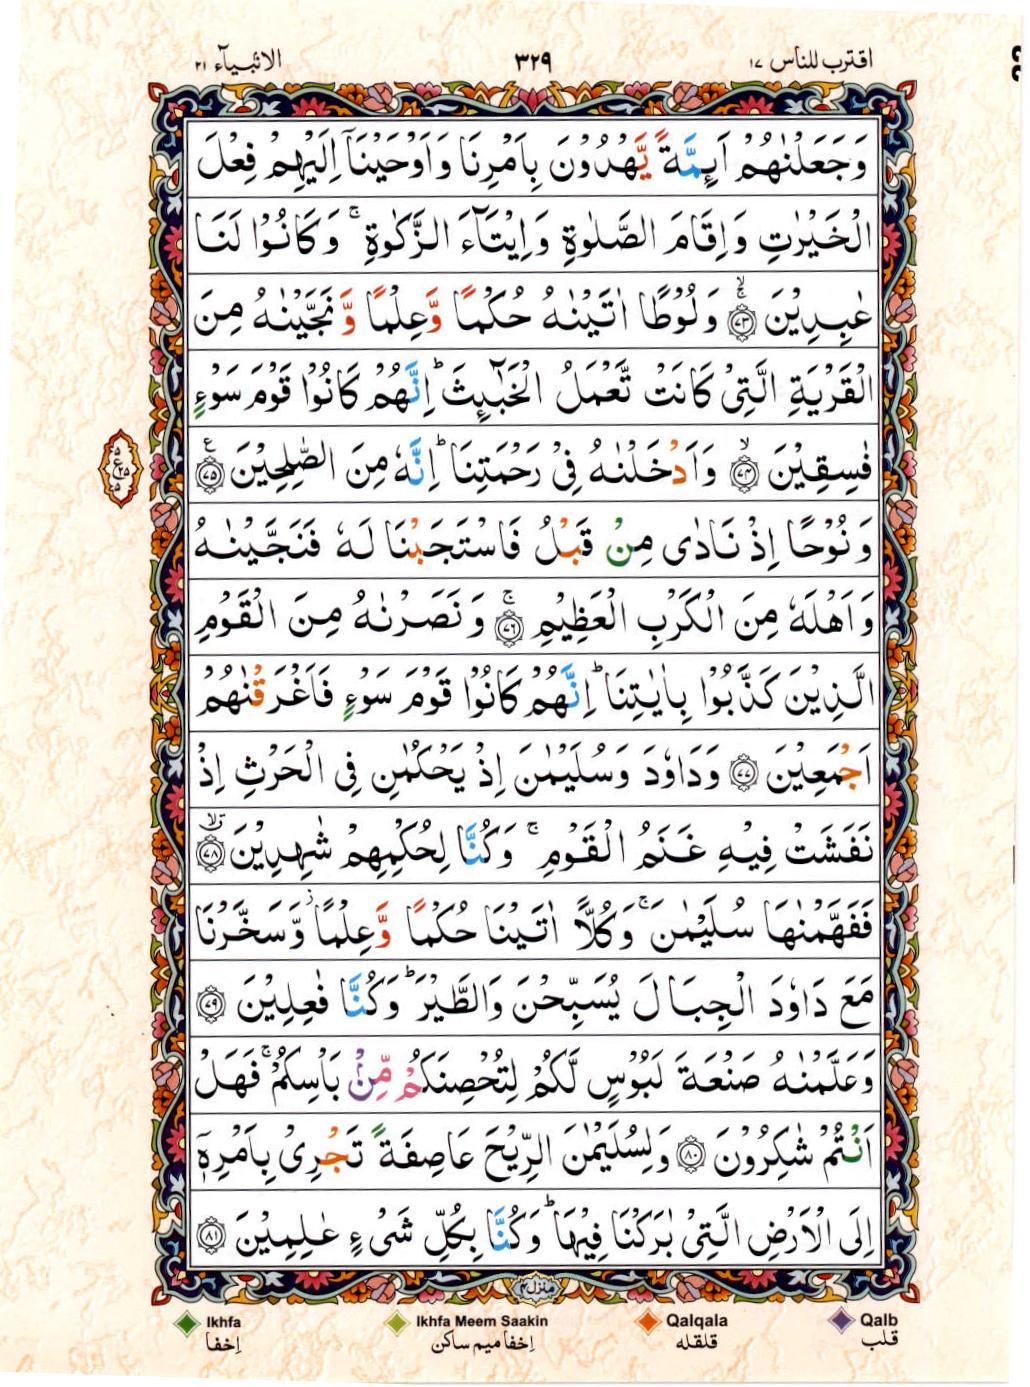 اقترب للناس ١٧ ٣٢٩ الانبیآء ٢١
وَجَعَلْنٰهُمْ اَىِٕمَّةً يَّهْدُوْنَ بِاَمْرِنَا وَاَوْحَيْنَاۤ اِلَيْهِمْ فِعْلَ
الْخَيْرٰتِ وَاِقَامَ الصَّلٰوةِ وَاِيْتَآءَ الزَّكٰوةِ ۚ وَكَانُوْا لَنَا
عٰبِدِيْنَ ۚۙ ﴿٧٣﴾ وَلُوْطًا اٰتَيْنٰهُ حُكْمًا وَّعِلْمًا وَّنَجَّيْنٰهُ مِنَ
الْقَرْيَةِ الَّتِيْ كَانَتْ تَّعْمَلُ الْخَبٰٓىِٕثَ ؕ اِنَّهُمْ كَانُوْا قَوْمَ سَوْءٍ
فٰسِقِيْنَ ۙ ﴿٧٤﴾ وَاَدْخَلْنٰهُ فِيْ رَحْمَتِنَا ؕ اِنَّهٗ مِنَ الصّٰلِحِيْنَ ﴿٧٥﴾ ع
وَنُوْحًا اِذْ نَادٰى مِنْ قَبْلُ فَاسْتَجَبْنَا لَهٗ فَنَجَّيْنٰهُ
وَاَهْلَهٗ مِنَ الْكَرْبِ الْعَظِيْمِ ۚ ﴿٧٦﴾ وَنَصَرْنٰهُ مِنَ الْقَوْمِ
الَّذِيْنَ كَذَّبُوْا بِاٰيٰتِنَا ؕ اِنَّهُمْ كَانُوْا قَوْمَ سَوْءٍ فَاَغْرَقْنٰهُمْ
اَجْمَعِيْنَ ﴿٧٧﴾ وَدَاوٗدَ وَسُلَيْمٰنَ اِذْ يَحْكُمٰنِ فِى الْحَرْثِ اِذْ
نَفَشَتْ فِيْهِ غَنَمُ الْقَوْمِ ۚ وَكُنَّا لِحُكْمِهِمْ شٰهِدِيْنَ ﴿٧٨﴾
فَفَهَّمْنٰهَا سُلَيْمٰنَ ۚ وَكُلًّا اٰتَيْنَا حُكْمًا وَّعِلْمًا ؗ وَّسَخَّرْنَا
مَعَ دَاوٗدَ الْجِبَالَ يُسَبِّحْنَ وَالطَّيْرَ ؕ وَكُنَّا فٰعِلِيْنَ ﴿٧٩﴾
وَعَلَّمْنٰهُ صَنْعَةَ لَبُوْسٍ لَّكُمْ لِتُحْصِنَكُمْ مِّنْۢ بَاْسِكُمْ ۚ فَهَلْ
اَنْتُمْ شٰكِرُوْنَ ﴿٨٠﴾ وَلِسُلَيْمٰنَ الرِّيْحَ عَاصِفَةً تَجْرِيْ بِاَمْرِهٖۤ
اِلَى الْاَرْضِ الَّتِيْ بٰرَكْنَا فِيْهَا ؕ وَكُنَّا بِكُلِّ شَيْءٍ عٰلِمِيْنَ ﴿٨١﴾
منزل ٤
Ikhfa Ikhfa Meem Saakin Qalqala Qalb
اِخفا اِخفا میم ساکن قلقلہ قلب